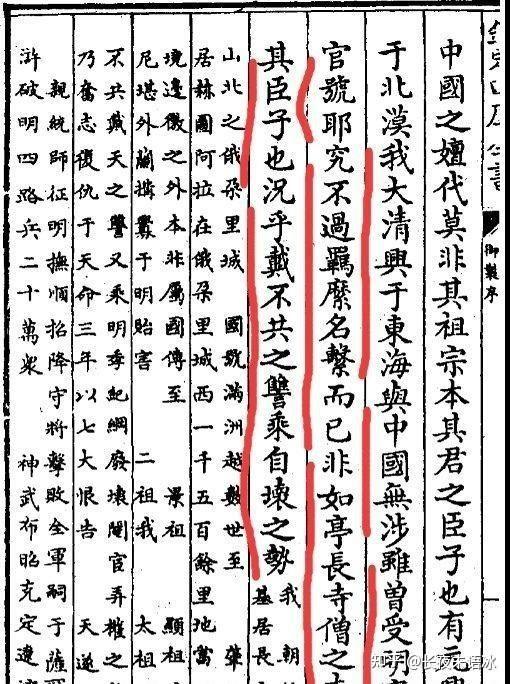 欽定四庫全書
御製序
中國之嬗代莫非其祖宗本其君之臣子也有元
于北漠我大清興于東海與中國無涉雖曾受
官號耶究不過羈縻名繫而已非如亭長寺僧之
其臣子也況乎戴不共之讐乘自壞之勢
我朝
基居長
山北之俄朶里城 國號滿洲越數世至 肇
居赫圖阿拉在俄朶里城西一千五百餘里地
境邊徼之外本非屬國傳至 景祖 顯祖
尼堪外蘭搆釁于明貽害 二祖我 太祖
不共戴天之讐又乘明季紀綱廢壞閹官弄權之
乃奮志復仇于天命三年以七大恨告 天遂
親統師征明撫順招降守將擊敗全軍嗣于薩
滸破明四路兵二十萬衆 神武布昭克定遼